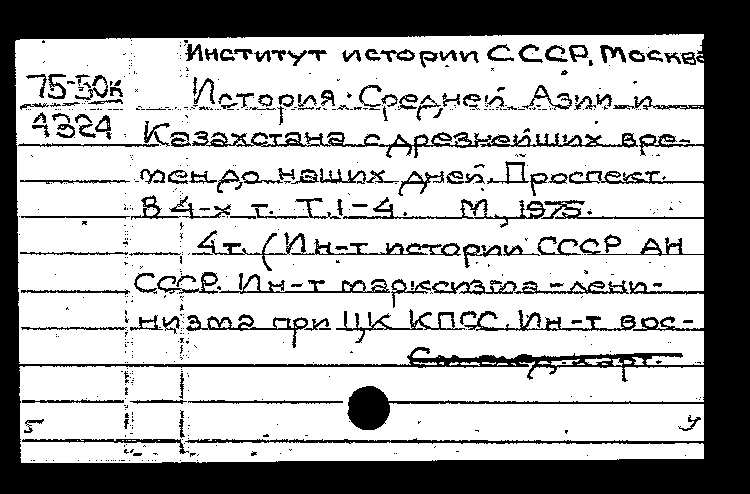 Институт истории СССР, Москва
75-50к
История Средней Азии и
4324
Казахстана с древнейших вре-
мен до наших дней. Проспект.
В 4-х т. Т.1-4. М., 1975.
4т. (Ин-т истории СССР АН
СССР. Ин-т марксизма-лени-
низма при ЦК КПСС. Ин-т вос-
См. след. карт.
5 у